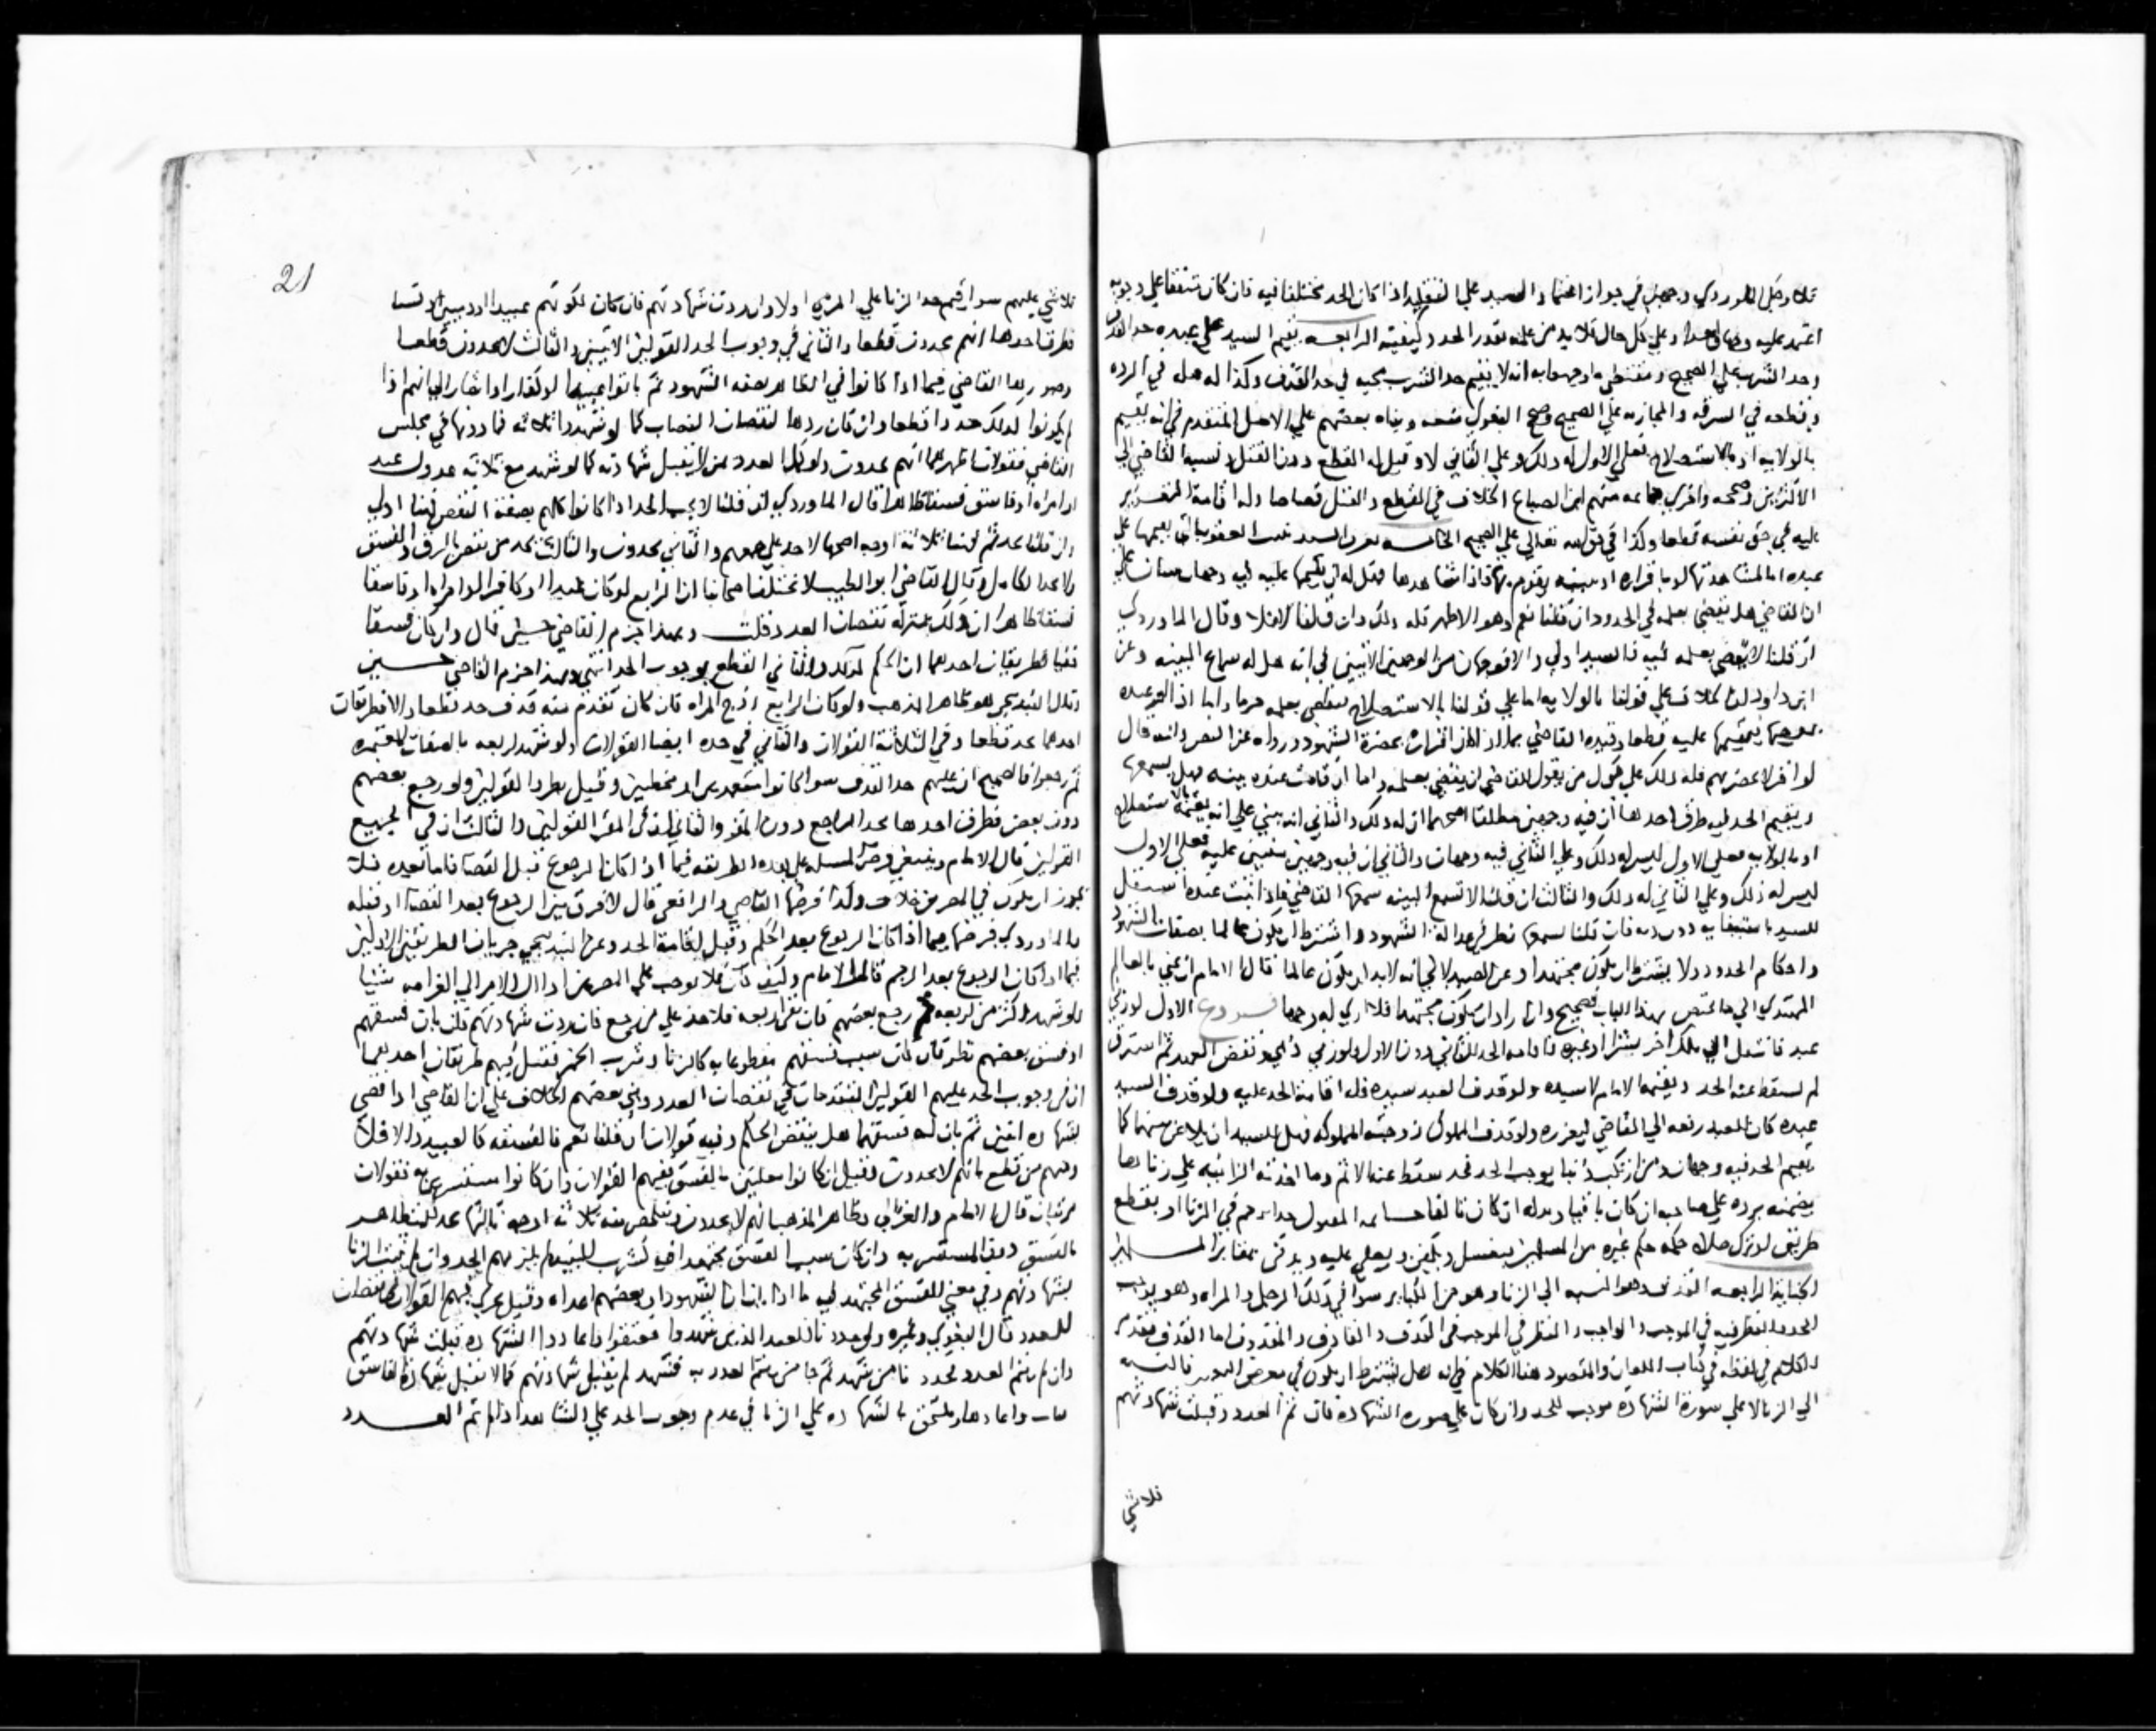 اعتمد عليه وعلى كل حال فلا بد من علمه بقدر الحد وكيفيته الرابعه يقيم السيد على عبده حد القذف
وحد الشرب على الصحيح وفي وجه انه لا يقيم حد الشرب في حد القذف وكذا له هل في الرده
وقطعه في السرقه والمحاربه على الصحيح وبناه بعضهم على الاصل المتقدم في انه يقيم
بالولايه او بالاستصلاح فعلى الاول له ذلك وعلى الثاني لا وقيل له القطع دون القتل ونسبه القاضي الى
الاكثرين وصححه واجرى جماعه منهم ابن الصباغ الخلاف في القطع والقتل قصاصا وله اقامة التعزير
عليه في حق نفسه قطعا وكذا في حق الله تعالى على الصحيح الخامسه
عبده اما بمشاهدتها او باقراره او ببينه تقوم بها فاذا شاهدها فهل له ان يقيمها عليه فيه وجهان مبنيان على
ان القاضي هل يقضي بعلمه في الحدود ان قلنا نعم وهو الاظهر فله ذلك وان قلنا لا فلا وقال الماوردي
ان قلنا لا يقضي بعلمه فيه فالسيد اولى والا فوجهان من الوجهين الاتيين في انه هل له سماع البينه وعن
لو اقر لا بحضرتهم فله ذلك على قول من يقول للقاضي ان يقضي بعلمه واما ان قامت عنده بينه فهل يسمعها
ويقيم الحد فيه طرق احدها ان فيه وجهين مطلقا اصحهما ان له ذلك والثاني انه يبنى على انه يقيمه بالاستصلاح
او بالولايه فعلى الاول ليس له ذلك وعلى الثاني فيه وجهان والثاني ان فيه وجهين مبنيين عليه فعلى الاول
ليس له ذلك وعلى الثاني له ذلك والثالث ان قلنا لا تسمع البينه سمعها القاضي فاذا ثبت عنده استقل
السيد باستيفايه دونه فان قلنا يسمعها نظر في عدالة الشهود واشترط ان يكون عالما بصفات الشهود
واحكام الحدود ولا يشترط ان يكون مجتهدا وعن الصيدلاني انه لا بد ان يكون عالما قال الامام ان عني بالعالم
المهتدي الى ما يختص بهذا الباب فصحيح وان اراد ان يكون مجتهدا فلا ارى له وجها فروع الاول لو زنى
عبد فانتقل الى ملك اخر بشرا او غيره فاقامه الحد للثاني دون الاول ولو زنى ذمي ونقض العهد ثم استرق
لم يسقط عنه الحد ويقيمه الامام لا سيده ولو قذف العبد سيده فله اقامة الحد عليه ولو قذف السيد
عبده كان للعبد رفعه الى القاضي ليعزره ولو قذف المملوك زوجته المملوكه فهل للسيد ان يلاعن بينهما كما
يقيم الحد فيه وجهان ومن ارتكب ذنبا يوجب الحد فحد سقط عنه الاثم وما اخذته الزانيه على زناها
يضمنه يرده على صاحبه ان كان باقيا وبدله ان كان تالفا خاتمه المقتول حدا برجم في الزنا او بقطع
طريق او بترك صلاه حكمه حكم غيره من المسلمين يغسل ويكفن ويصلى عليه ويدفن بمقابر المسلمين
الجنايه الرابعه القذف وهو النسبه الى الزنا وهو من الكباير سوا في ذلك الرجل والمراه وهو يوجب
الحد والنظر فيه في الموجب والواجب والنظر في الموجب في القذف والقاذف والمقذوف اما القذف فتقدم
الكلام في لفظه في كتاب اللعان والمقصود هنا الكلام في انه هل يشترط ان يكون في معرض التعيير فالنسبه
الى الزنا لا على صورة الشهاده موجب للحد وان كان على صوره الشهادة فان تم العدد وقبلت شهادتهم
فلا شي
21
فلا شي عليهم سوا اقيم حد الزنا على المرمي او لا وان ردت شهادتهم فان كان لكونهم عبيدا او
فطرق احدها انهم يحدون قطعا والثاني في وجوب الحد القولين الاتيين والثالث لا يحدون قطعا
وصورها القاضي فيما اذا كانوا في الظاهر بصفه الشهود ثم بانوا عبيدا او كفارا واشار الى انهم اذا
لم يكونوا كذلك حدوا قطعا وان كان ردها لنقصان النصاب كما لو شهد ثلاثه فما دونها في مجلس
القاضي فقولان اظهرهما انهم يحدون ولو كمل العدد بمن لا تقبل شهادته كما لو شهد مع ثلاثه عدول عبد
او امراه او فاسق فسقا ظاهرا قال الماوردي ان قلنا لا يجب الحد اذا كانوا كلهم بصفة النقص فهنا اولى
وان قلنا يحد ثم فهنا ثلاثة اوجه اصحها لا حد على جميعهم والثاني يحدون والثالث يحد من نقص بالرق والفسق
ولا يحد الكامل وقال القاضي ابو الطيب لا يختلف اصحابنا ان الرابع لو كان عبدا او كافرا او امراه او فاسقا
فسقا ظاهرا ان ذلك بمنزله نقصان العدد قلت وبهذا جزم القاضي حسين قال وان كان فسقا
وقال البندنيجي هو ظاهر المذهب ولو كان الرابع زوج المراه فان كان تقدم منه قذف حد قطعا والا فطريقان
احدهما يحد قطعا وفي الثلاثة القولان والثاني في حده ايضا القولان ولو شهد اربعه بالصفات المعتبره
ثم رجعوا فالصحيح ان عليهم حد القذف سوا كانوا متعمدين او مخطيين وقيل بطرد القولين ولو رجع بعضهم
دون بعض فطرق احدها يحد الراجع دون المقر والثاني ان في المقر القولين والثالث ان في الجميع
القولين قال الامام وينبغي فرض المسله على هذه الطريقه فيما اذا كان الرجوع قبل القضا فاما بعده فلا
يجوز ان يكون في المصرين خلاف ولذا فرضها القاضي والرافعي قال لا فرق بين الرجوع بعد القضا او قبله
والماوردي فرضها فيما اذا كان الرجوع بعد الحكم وقبل اقامة الحد وعن البندنيجي جريان الطريقين الاولين
فيما اذا كان الرجوع بعد الرجم قال الامام وكيف كان فلا نوجب على المصرين اذا ال الامر الى الغرامه شيا
ولو شهد اكثر من اربعه ثم رجع بعضهم فان بقي اربعه فلا حد على من رجع فان ردت شهادتهم بان بان فسقهم
او فسق بعضهم نظر فان كان سبب فسقهم مقطوعا به كالزنا وشرب الخمر فقيل فيهم طريقان احدهما
ان في وجوب الحد عليهم القولين المتقدمين في نقصان العدد وبنى بعضهم الخلاف على ان القاضي اذا قضى
بشهاده اثنين ثم بان له فسقهما هل ينقض الحكم وفيه قولان ان قلنا نعم فالفسقه كالعبيد والا فلا
ومنهم من قطع بانهم لا يحدون وقيل ان كانوا معلنين بالفسق ففيهم القولان وان كانوا مستترين به فقولان
مرتبان قال الامام والغزالي وظاهر المذهب انهم لا يحدون ويتلخص منه ثلاثه اوجه ثالثها يحد المتظاهر
بالفسق دون المستتر به وان كان سبب الفسق مجتهدا فيه كشرب النبيذ لم يلزمهم الحد وان لم يثبت الزنا
بشهادتهم وفي معنى الفسق المجتهد فيه ما اذا بان ان الشهود او بعضهم اعداه وقيل يجري فيهم القولان كنقصان
العدد قال البغوي وغيره ولو حد العبد الذين شهدوا فعتقوا واعادوا الشهاده قبلت شهادتهم
وان لم يتم العدد فحدوا من شهد ثم جا من يتم العدد به فشهد لم يقبل شهادتهم كما لا تقبل شهادة الفاسق
تاب واعادها ويلتحق بالشهاده على الزنا في عدم وجوب الحد على الشاهد اذا لم يتم العدد